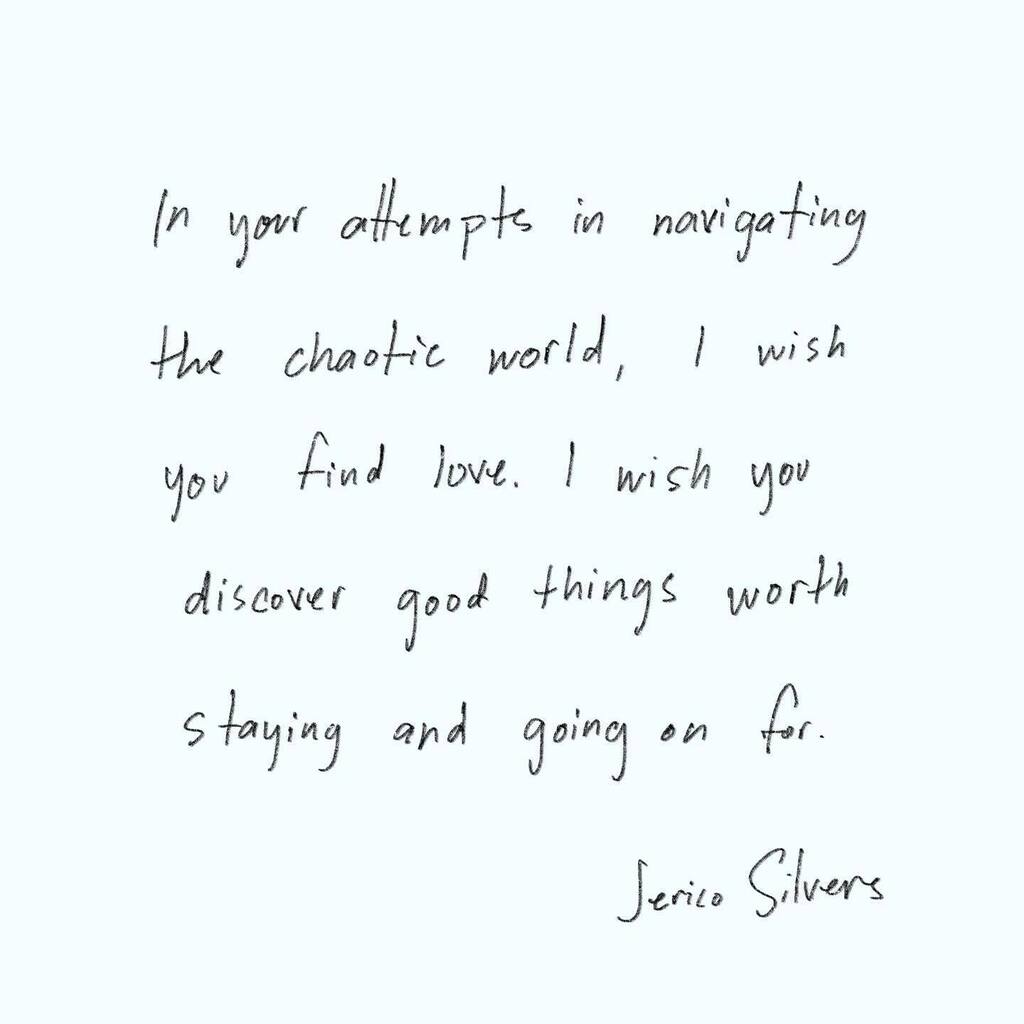 In your attempts in navigating
the chaotic world, I wish
you find love. I wish you
discover good things worth
staying and going on for.
Jerico Silvers